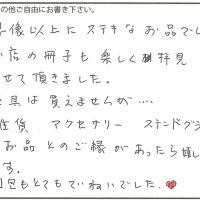 の他ご自由にお書き下さい。
像以上にステキなお品でし
店の冊子も楽しく拝見
せて頂きました。
具は買えませんが….
貨 アクセサリー ステンドグラ
お品とのご縁があったら嬉し
す。
包もとてもていねいでした.❤